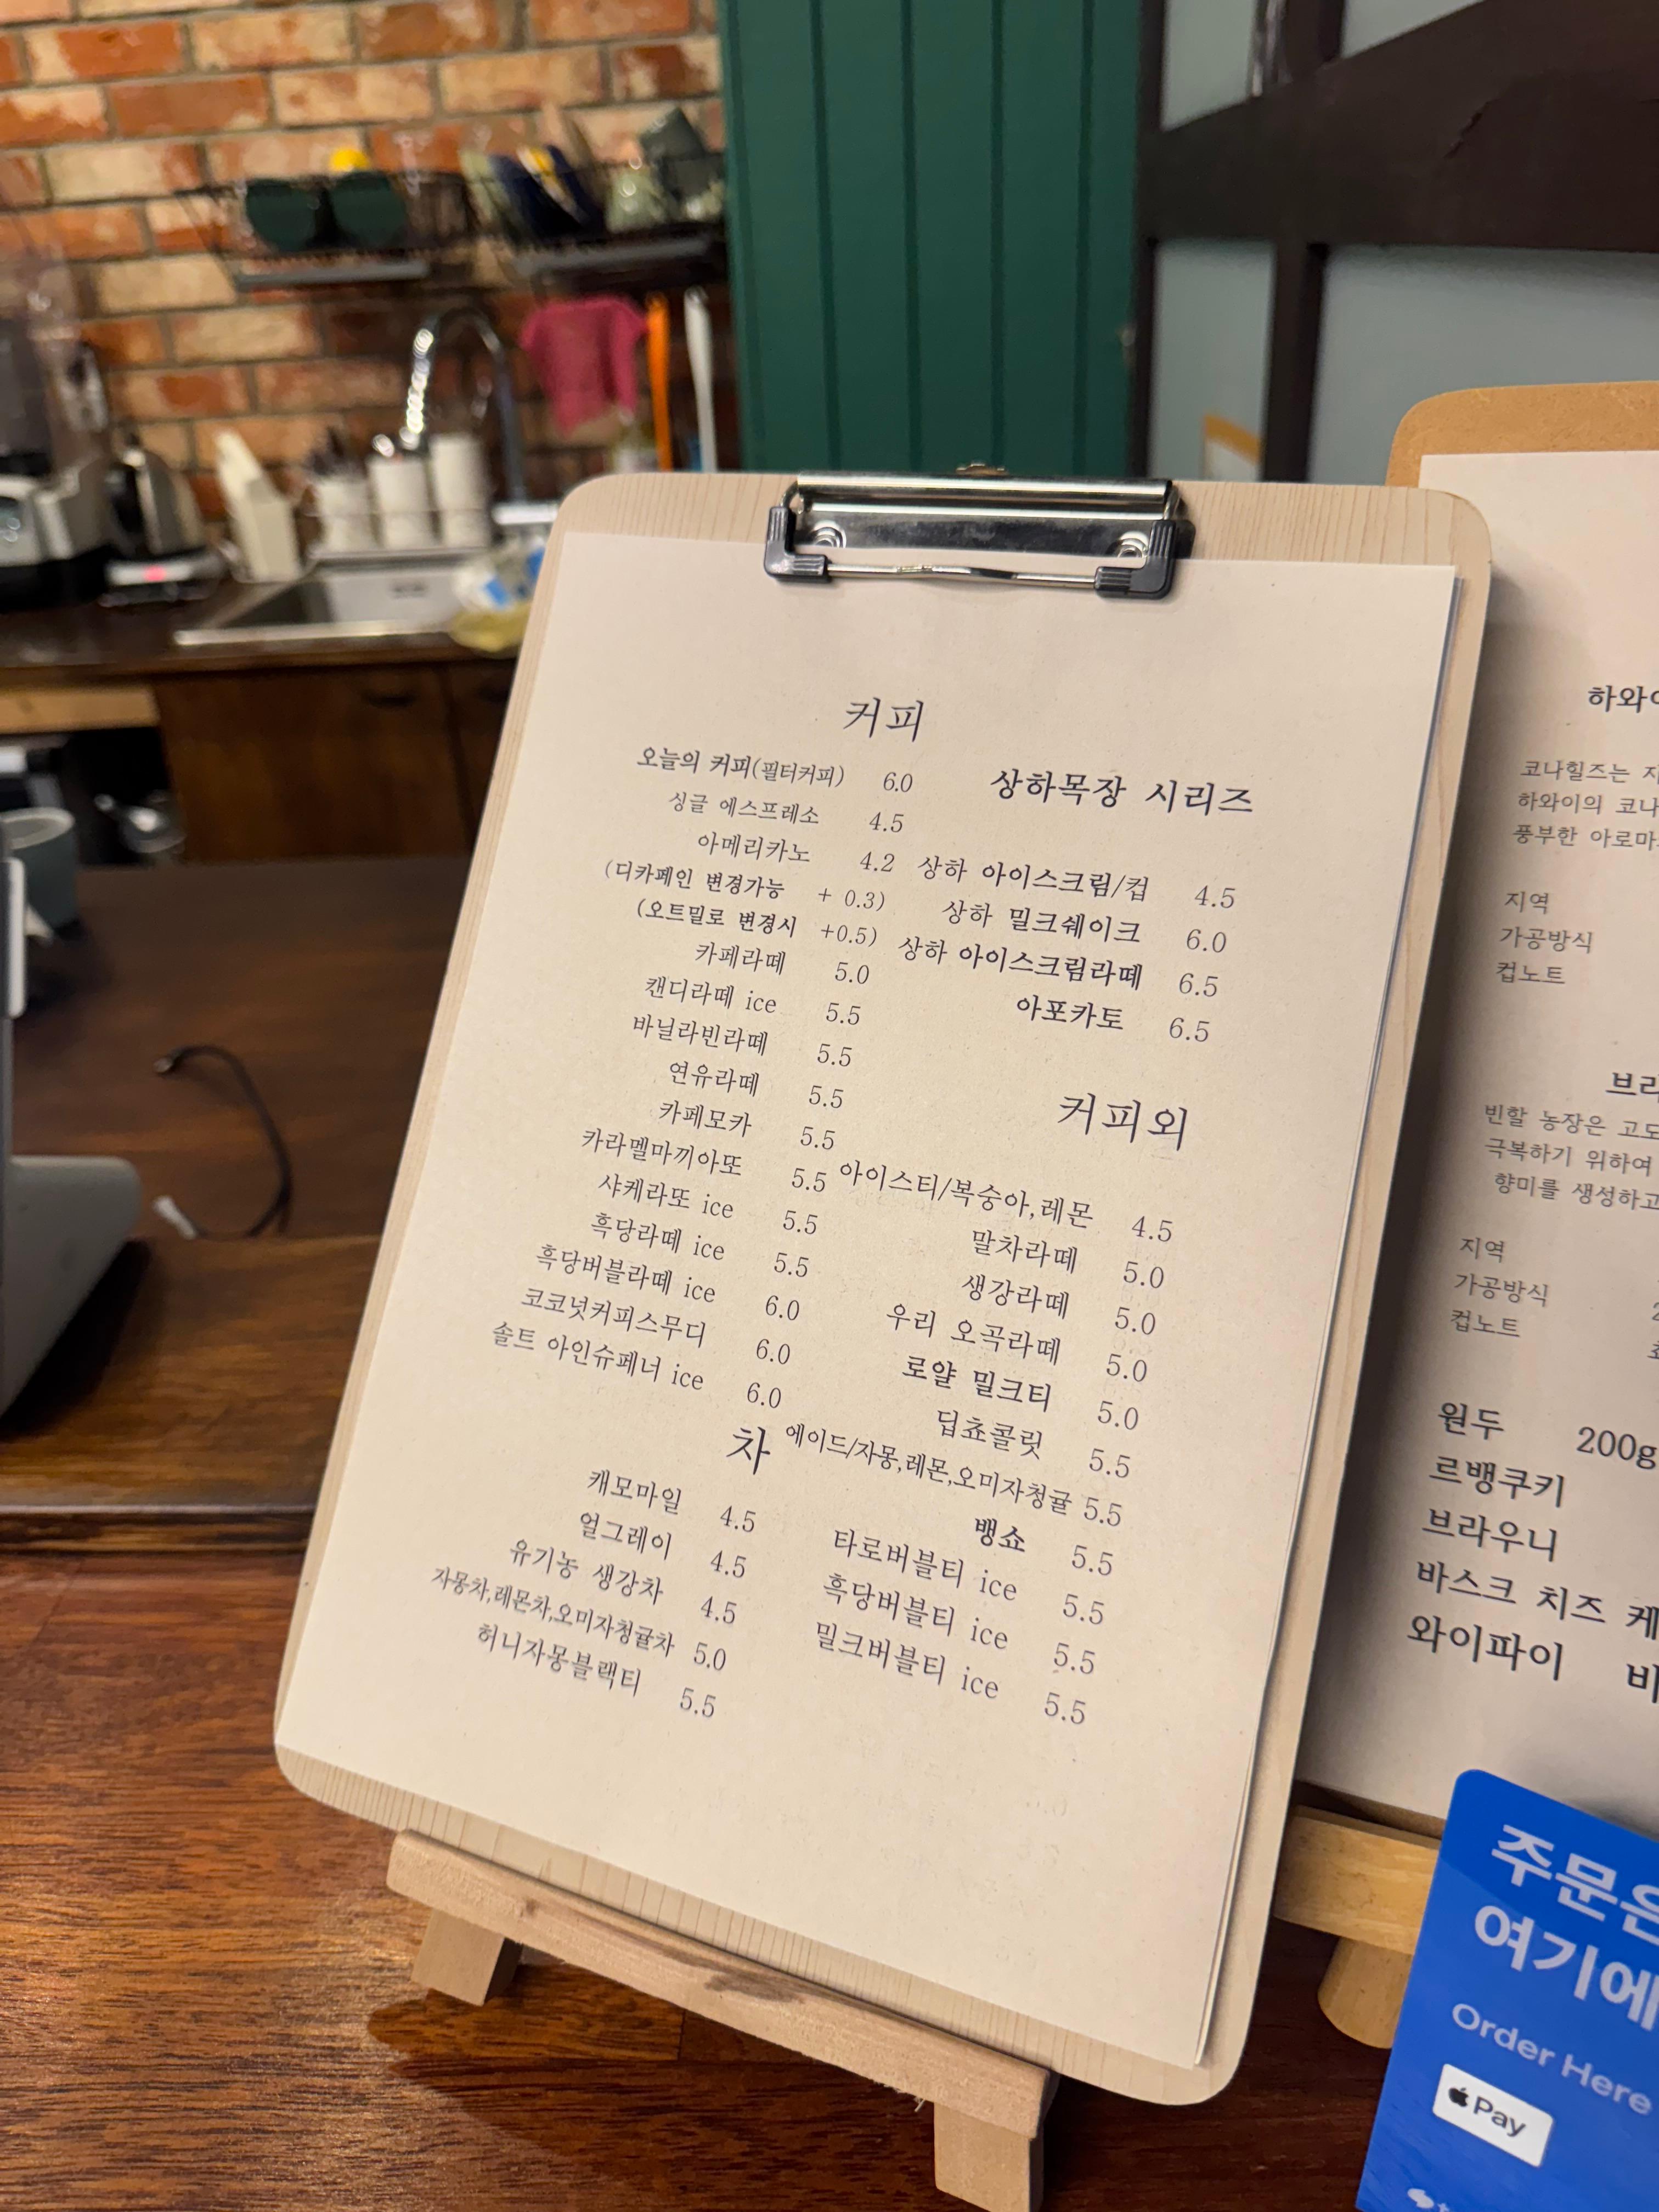 커피
오늘의 커피(필터커피) 6.0
싱글 에스프레소 4.5
아메리카노 4.2
(디카페인 변경가능 + 0.3)
(오트밀로 변경시 +0.5)
카페라떼 5.0
캔디라떼 ice 5.5
바닐라빈라떼 5.5
연유라떼 5.5
카페모카 5.5
카라멜마끼아또 5.5
샤케라또 ice 5.5
흑당라떼 ice 5.5
흑당버블라떼 ice 6.0
코코넛커피스무디 6.0
솔트 아인슈페너 ice 6.0
차
캐모마일 4.5
얼그레이 4.5
유기농 생강차 4.5
자몽차,레몬차,오미자청귤차 5.0
허니자몽블랙티 5.5
상하목장 시리즈
상하 아이스크림/컵 4.5
상하 밀크쉐이크 6.0
상하 아이스크림라떼 6.5
아포카토 6.5
커피외
아이스티/복숭아,레몬 4.5
말차라떼 5.0
생강라떼 5.0
우리 오곡라떼 5.0
로얄 밀크티 5.0
딥쵸콜릿 5.5
에이드/자몽,레몬,오미자청귤 5.5
뱅쇼 5.5
타로버블티 ice 5.5
흑당버블티 ice 5.5
밀크버블티 ice 5.5
코나힐즈는
하와이의
풍부한
지역
가공방식
컵노트
빈할 농장은
극복하기 위하여
향미를 생성하고
지역
가공방식
컵노트
원두 200g
르뱅쿠키
브라우니
바스크 치즈
와이파이
주문은
여기에
Order Here
Pay